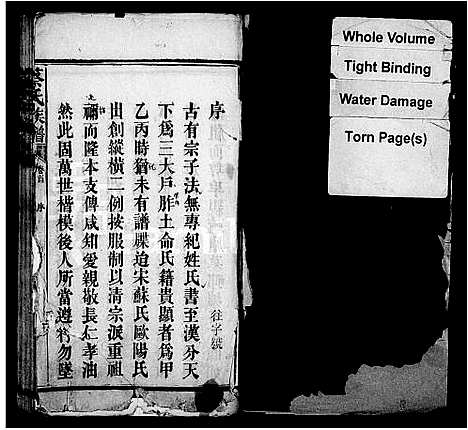 序
古有宗子法無專紀姓氏書至漢分天
下爲三大戶胙土命氏籍貴顯者爲甲
乙丙時猶未有譜牒迫宋蘇氏歐陽氏
出創縱橫二例按服制以清宗派重祖
禰而隆本支傳咸知愛親敬長仁孝油
然此固萬世楷模後人所當遵將勿墜
氏族譜
序
Whole Volume
Tight Binding
Water Damage
Torn Page(s)